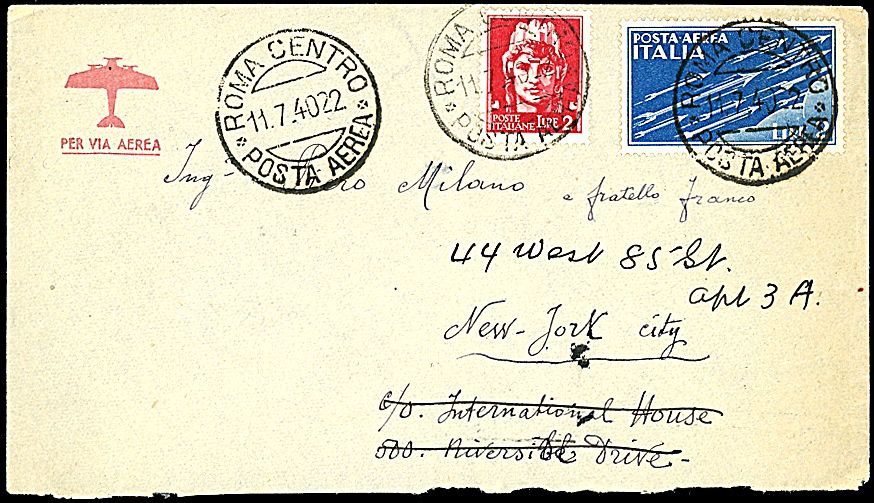 PER VIA AEREA
ROMA CENTRO
11.7.40 22
POSTA AEREA
ROMA CENTRO
11.7.40
POSTA AEREA
POSTE ITALIANE
LIRE 2
POSTA AEREA
ITALIA
ROMA CENTRO
11.7.40 22
POSTA AEREA
Ing- Piero Milano e fratello Franco
44 West 85 St.
apt 3 A.
New-York city
c/o. International House
500. Riverside Drive-